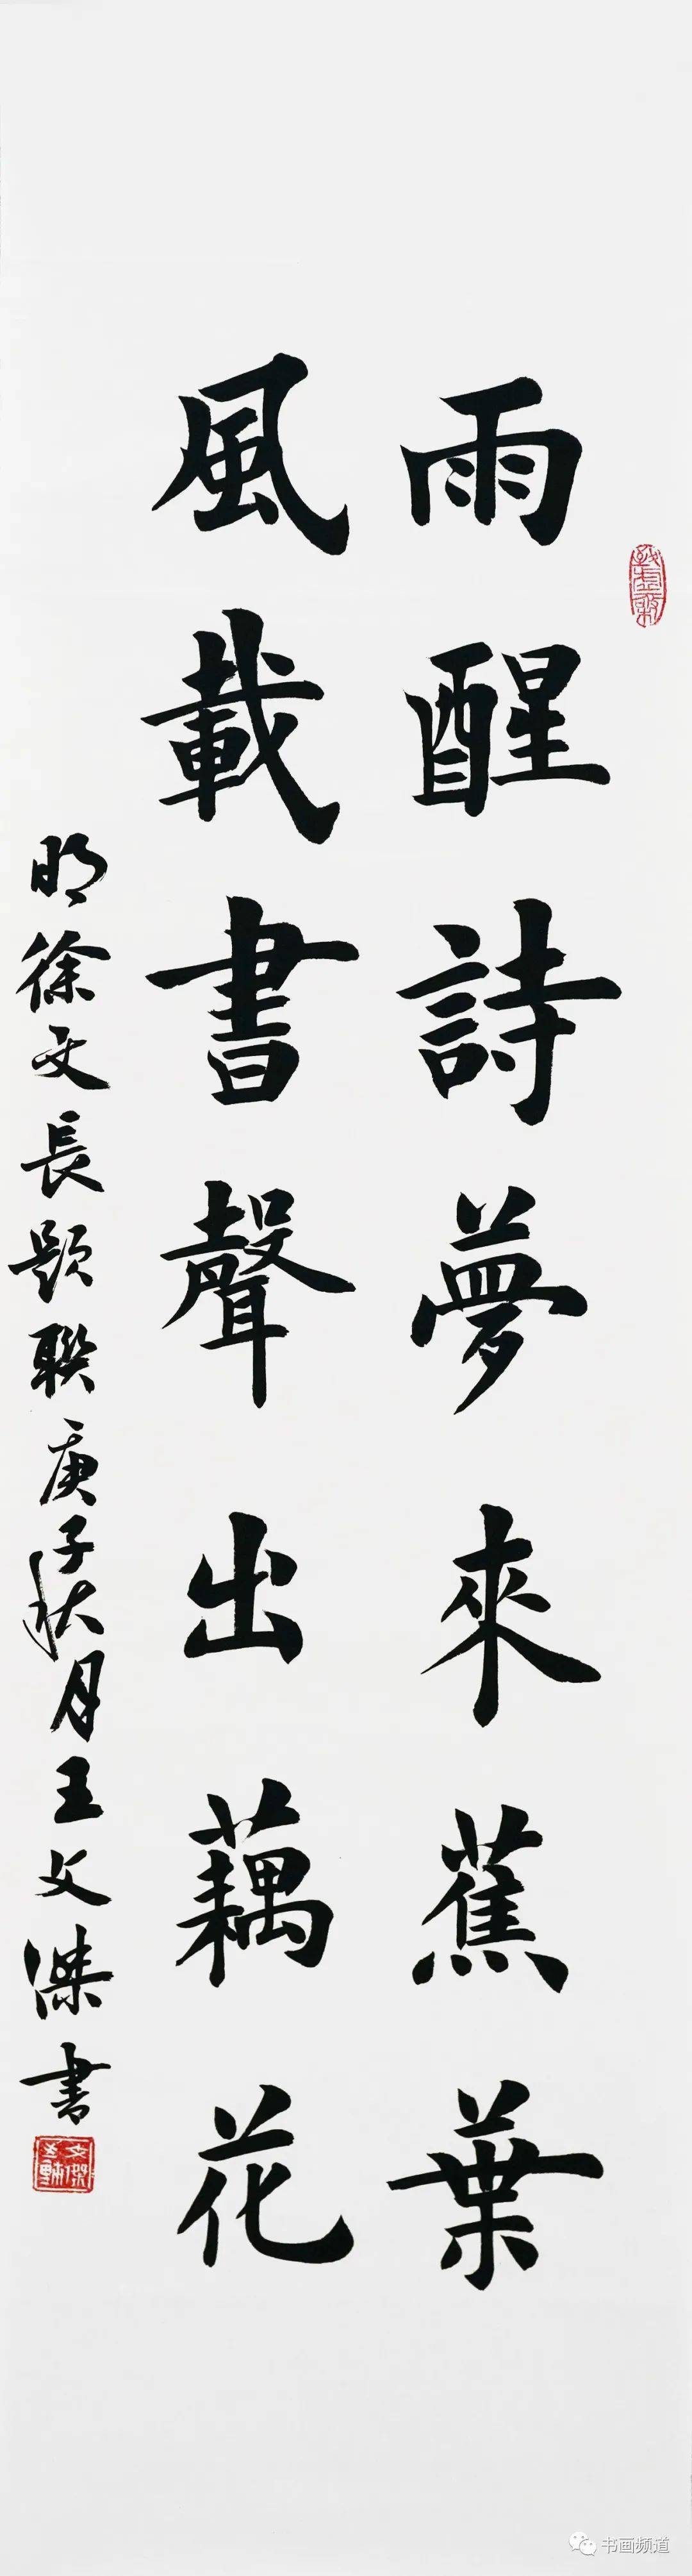 雨醒詩夢來蕉葉
風載書聲出藕花
明徐文長題聯庚子秋月王文傑書
书画频道